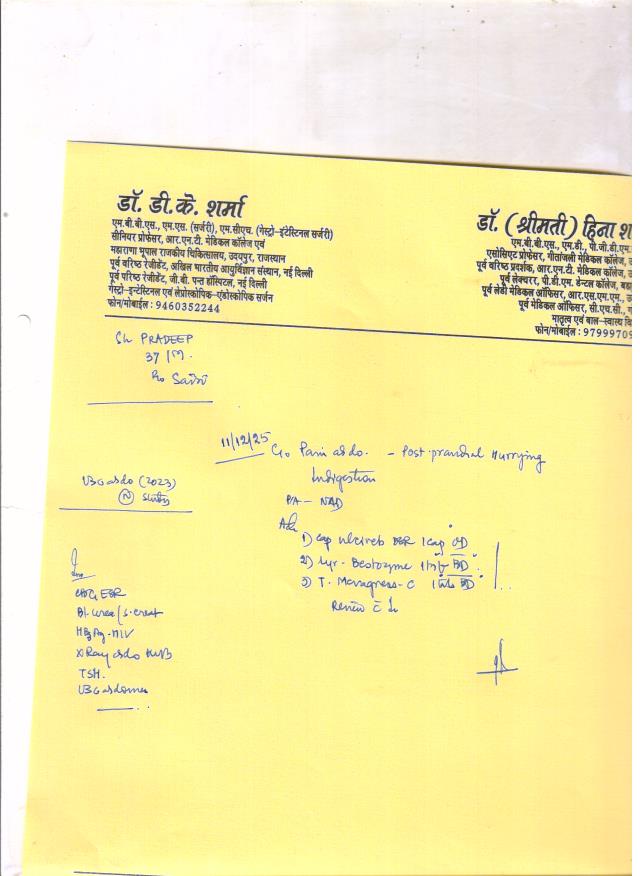 डॉ. डी.के. शर्मा
एम.बी.बी.एस., एम.एस. (सर्जरी), एम.सीएच. (गेस्ट्रो-इंटेस्टिनल सर्जरी)
सीनियर प्रोफेसर, आर.एन.टी. मेडिकल कॉलेज एवं
महाराणा भूपाल राजकीय चिकित्सालय, उदयपुर, राजस्थान
पूर्व वरिष्ठ रेजीडेंट, अखिल भारतीय आयुर्विज्ञान संस्थान, नई दिल्ली
पूर्व वरिष्ठ रेजीडेंट, जी.बी. पन्त हॉस्पिटल, नई दिल्ली
गेस्ट्रो-इन्टेस्टिनल एवं लेप्रोस्कोपिक-एंडोस्कोपिक सर्जन
फोन/मोबाईल : 9460352244
डॉ. (श्रीमती) हिना श
एम.बी.बी.एस., एम.डी., पी.जी.डी.एम.
एसोसिएट प्रोफेसर, गीतांजली मेडिकल कॉलेज,
पूर्व वरिष्ठ प्रदर्शक, आर.एन.टी. मेडिकल कॉलेज,
पूर्व लेक्चरर, पी.डी.एम. डेन्टल कॉलेज,
पूर्व लेडी मेडिकल ऑफिसर, आर.एस.एम.एम.,
पूर्व मेडिकल ऑफिसर, सी.एच.सी.,
मातृत्व एवं बाल-स्वास्थ्य
फोन/मोबाईल : 9799970
Sh PRADEEP
37
R/o
11/12/25 C/o Pain abdo. - Post prandial Hurrying
Indigestion
USG abdo (2023)
N
P/A - NAD
Adv
1) Cap 1 cap OD
2) Syr. Bestozyme BD
3) T. BD
Review
CBC ESR
Bl. urea / S. creat
HBsAg - HIV
X Ray abdo KUB
TSH.
USG abdomen